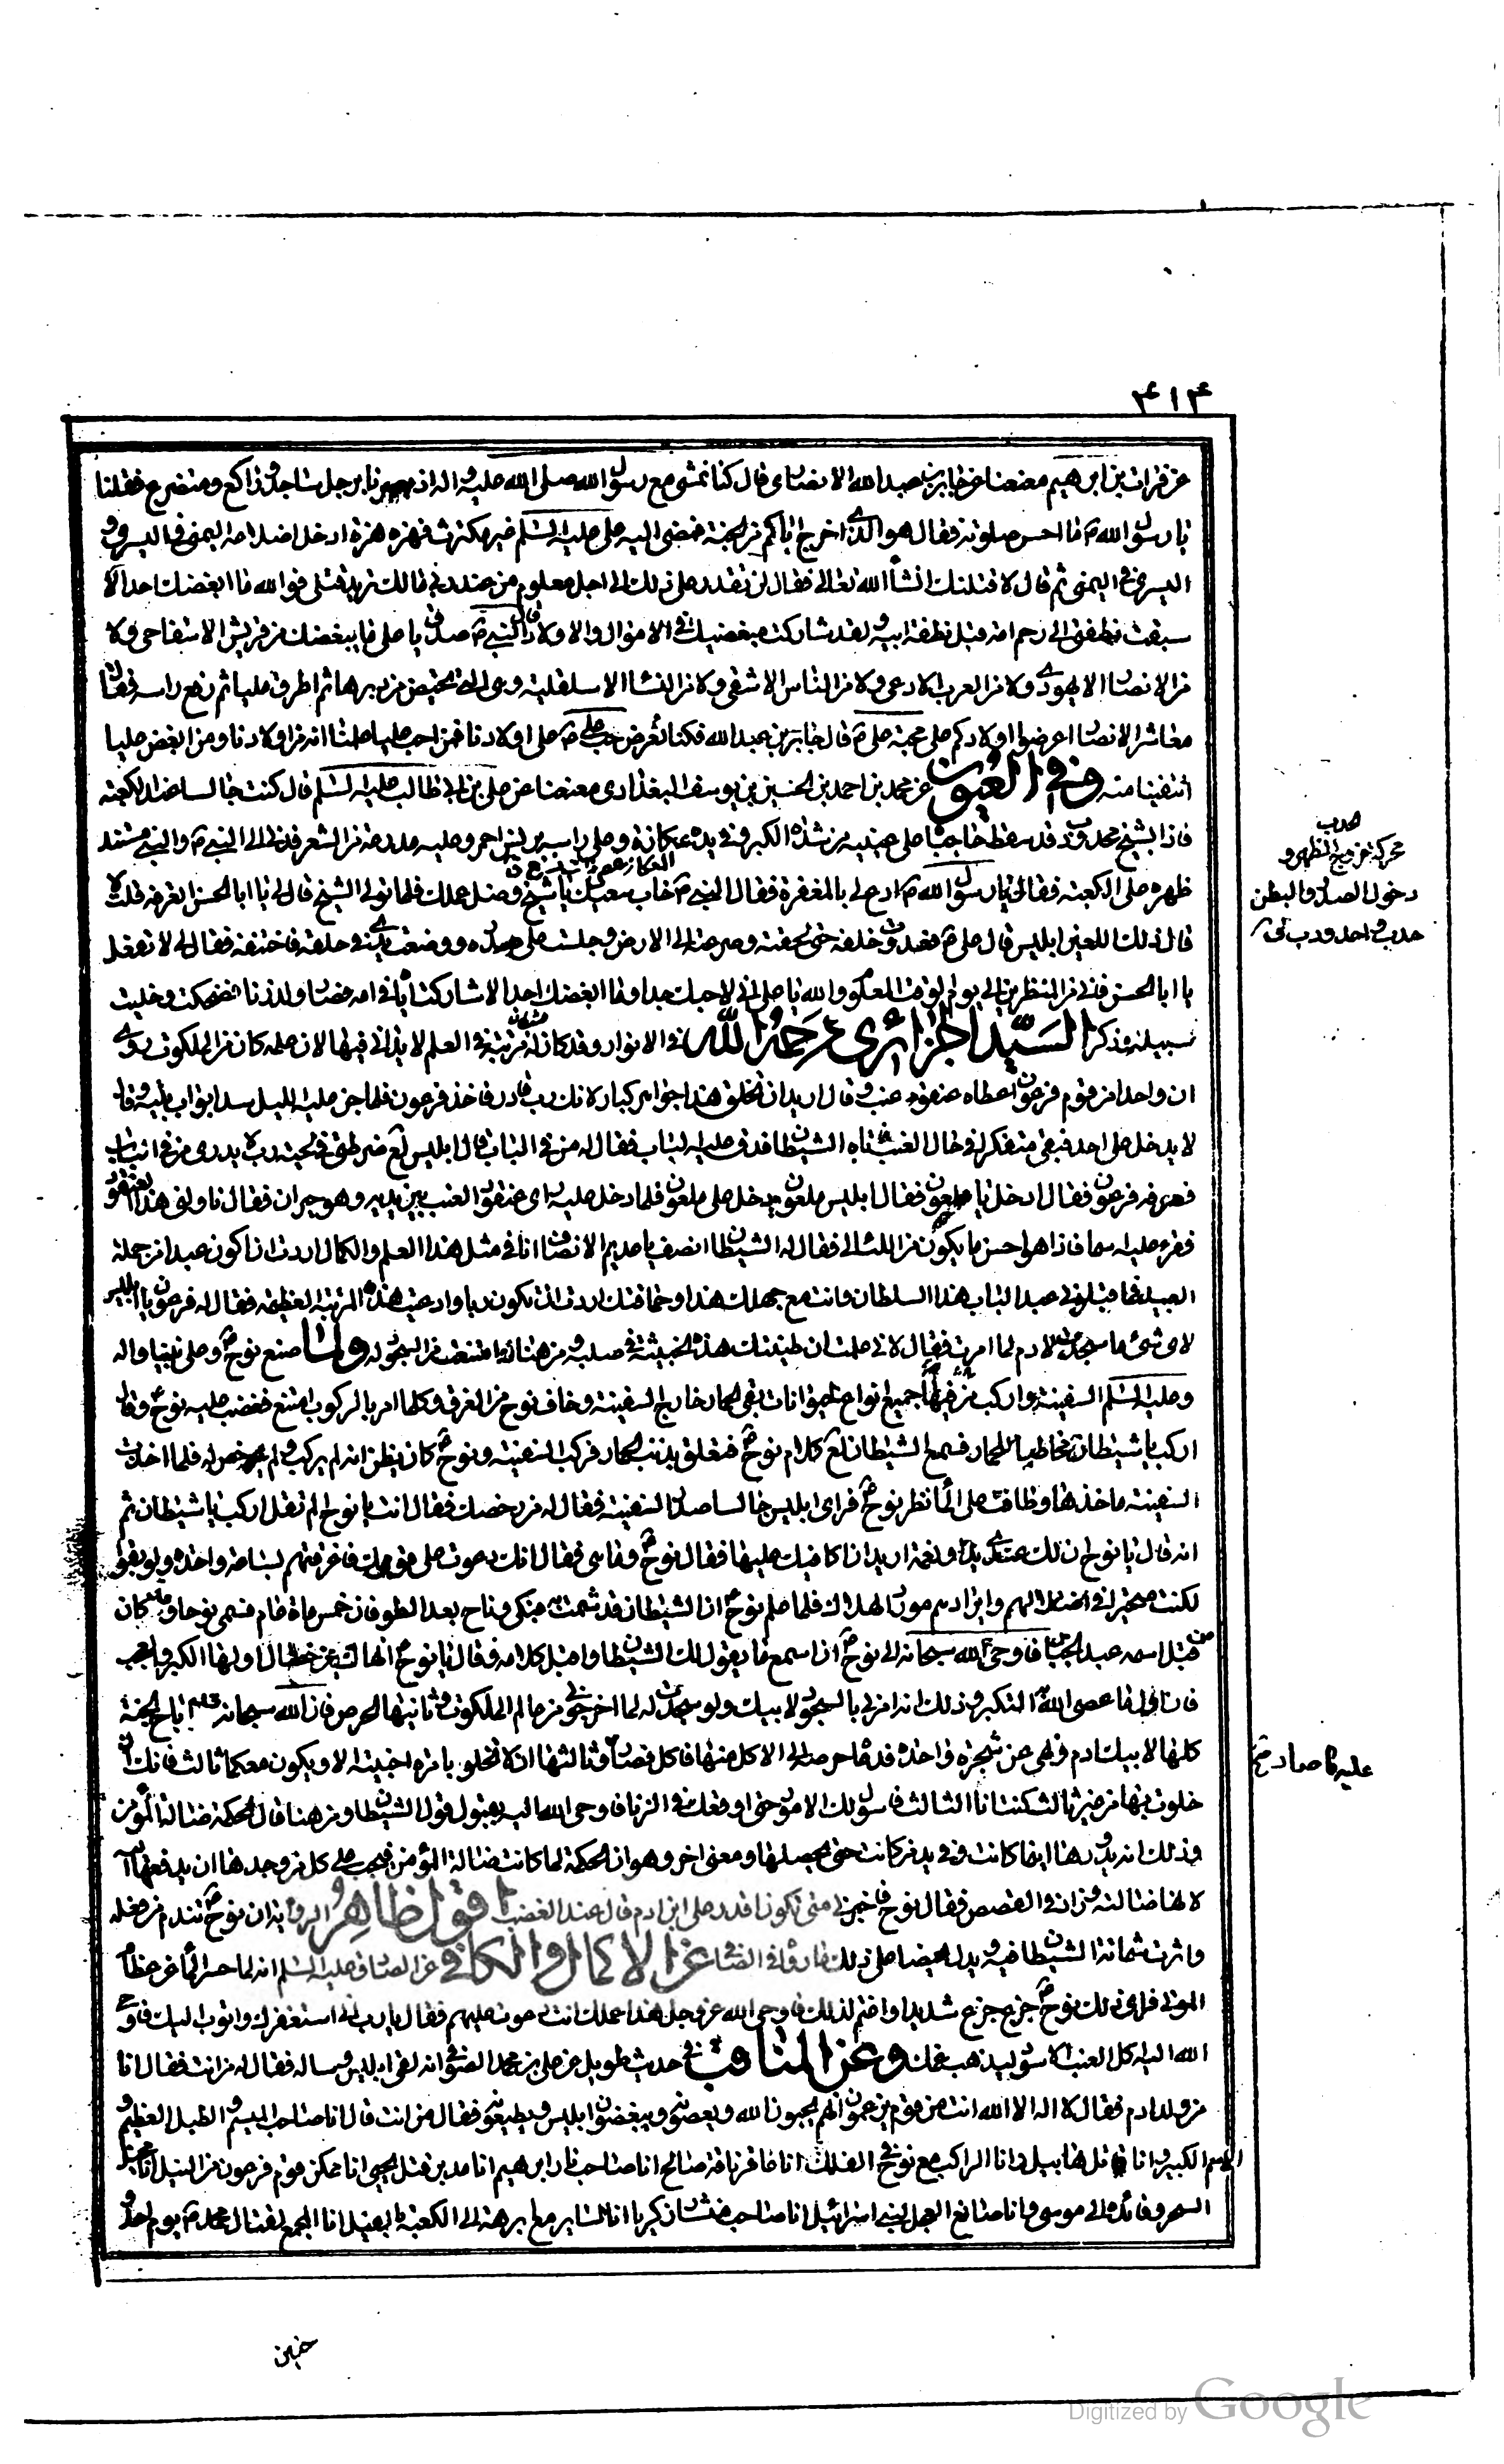 ۴۱۴
عن فرات بن ابرهيم معنعنا عن جابر بن عبد الله الانصاری قال كنا نمشی مع رسول الله صلی الله عليه واله اذ بصرنا برجل ساجد وراكع ومتضرع فقلنا
يا رسول الله ص ما احسن صلوته فقال هو الذي اخرج اباكم من الجنة فمضى اليه علی عليه السلم غير مكترث فهزه هزة ادخل اضلاعه اليمنى في اليسرى و
اليسرى في اليمنى ثم قال لاقتلنك انشاء الله تعالى فقال لن تقدر على ذلك الى اجل معلوم من عند ربي مالك تريد قتلى فوالله ما ابغضك احد الا
سبقت نطفتي الى رحم امه قبل نطفة ابيه ولقد شاركت مبغضيك في الاموال والاولاد قال النبي ص صدق يا على ما يبغضك من قريش الا سفاحى ولا
من الانصار الا يهودي ولا من العرب الا دعى ولا من الناس الا شقى ولا من النساء الا سلقلقية وهى التى تحيض من دبرها ثم اطرق مليا ثم رفع راسه فقال
معاشر الانصار اعرضوا اولادكم على محبة علي ع قال جابر بن عبد الله فكنا نعرض حب علي ع على اولادنا فمن احب عليا علمنا انه من اولادنا ومن ابغض عليا
انتفينا منه وفي العيون عن محمد بن احمد بن الحسين بن يوسف البغدادى معنعنا عن علي بن ابي طالب عليه السلم قال كنت جالسا عند الكعبة
فاذا بشيخ محدودب قد سقط حاجباه على عينيه من شدة الكبر وفي يده عكازة وعلى راسه برنس احمر وعليه مدرعة من الشعر فدنى الى النبي ص والنبي مسند
ظهره على الكعبة فقال يا رسول الله ص ادع لى بالمغفرة فقال النبي ص خاب سعيك يا شيخ وضل عملك فلما تولى الشيخ قال لى يا ابا الحسن اتعرفه قلت لا
قال ذلك اللعين ابليس قال علي ع فعدوت خلفه حتى لحقته وصرعته الى الارض وجلست على صدره ووضعت يدي في حلقه لاخنقه فقال لى لا تفعل
يا ابا الحسن فاني من المنظرين الى يوم الوقت المعلوم والله يا على انى لاحبك جدا وما ابغضك احد الا شاركت اباه في امه فصار ولد زنا فضحكت وخليت
سبيله وذكر السيد الجزائرى رحمه الله في الانوار وقد كان له مرتبة في العلم لا يدانى فيها لان علمه كان من الملكوت روي
ان واحدا من قوم فرعون اعطاه عنقود عنب وقال اريد ان تخلق هذا جواهر كبارا لانك رب قادر فاخذه فرعون فلما جن عليه الليل سد ابواب بيته وقال
لا يدخل على احد فبقى متفكرا في حال العنب فاتاه الشيطان فدق عليه الباب فقال له من في الباب قال ابليس لع ضرطتى في لحية رب لا يدرى من في الباب
فعرفه فرعون فقال ادخل يا ملعون فقال ابليس ملعون يدخل على ملعون فلما دخل عليه راى عنقود العنب بين يديه وهو حيران فقال ناولنى هذا العنقود
فقرء عليه اسما فاذا هو احسن ما يكون من اللئالى فقال له الشيطان انصف يا عديم الانصاف انا في مثل هذا العلم والكمال اردت ان اكون عبدا من جملة
العبيد فما قبلونى عبدا لباب هذا السلطان وانت مع جهلك هذا وحماقتك اردت ان تكون ربا وادعيت هذه المرتبة العظيمة فقال له فرعون يا ابليس
لاى شىء ما سجدت لادم لما امرت فقال لانى علمت ان طينتك هذه الخبيثة في صلبه ومن هناك امتنعت من السجود له ولما صنع نوح ع وعلى نبينا واله
وعليه السلم السفينة واركب من فيها جميع انواع الحيوانات بقى الحمار خارج السفينة وخاف نوح من الغرق وكلما امر بالركوب امتنع فغضب عليه نوح ع وقال
اركب يا شيطان مخاطبا للحمار فسمع الشيطان لع كلام نوح ع فتعلق بذنب الحمار فركب السفينة ونوح ع كان يظن انه لم يركب ولم يرخص له فلما اخذت
السفينة ماخذها وطافت على الماء نظر نوح ع فراى ابليس جالسا صدر السفينة فقال له من رخصك فقال انت يا نوح الم تقل اركب يا شيطان ثم
انه قال يا نوح ان لك عندي يدا ونعمة اريد ان اكافيك عليها فقال نوح ع وما هى فقال انك دعوت على قومك فاغرقتهم بساعة واحدة ولو بقوا
لكنت متحيرا في اضلالهم وايرادهم موارد الهلاك فلما علم نوح ع ان الشيطان قد شمت به بكى وناح بعد الطوفان خمس ماة عام فسمى نوحا وكان
من قبل اسمه عبد الجبار فاوحى الله سبحانه الى نوح ع ان اسمع ما يقول لك الشيطان واقبل كلامه فقال يا نوح انهاك عن خصال اولها الكبر والعجب
فان اول ما عصى الله به التكبر وذلك انه امرني بالسجود لابيك ولو سجدت له لما اخرجونى من عالم الملكوت وثانيها الحرص فان الله سبحانه اباح الجنة
كلها لابيك ادم ونهى عن شجرة واحدة فدعاه حرصه الى الاكل منها فاكل فصار وثالثها ان لا تخلو بامرءة اجنبية الا ويكون معكما ثالث فانك ان
خلوت بها من غير ثالث كنت انا الثالث فاسول لك الامور حتى اوقعك في الزنا فاوحى الله اليه بقبول قول الشيطان ومن هنا قال الحكمة ضالة المؤمن
وذلك انه يدور بها اينما كانت وفي يد من كانت حتى يحصلها ومعنى اخر وهو ان الحكمة لما كانت ضالة المؤمن فيجب على كل من وجدها ان يدفعها
لانها ضالته وان في القصص فقال نوح ع فاخبرني متى تكون اقدر على ابن ادم قال عند الغضب اقول ظاهر الرواية ان نوح ع تندم من فعله
واثرت شماتة الشيطان فيه ويدل ايضا على ذلك ما رواه في الصافى عن الاكمال والكافي عن الصادق عليه السلم انه لما حسر الماء عن عظام
الموتى فراى ذلك نوح ع جزع جزعا شديدا واغتم لذلك فاوحى الله عز وجل هذا عملك انت دعوت عليهم فقال يا رب انى استغفرك واتوب اليك فاوحى
الله اليه كل العنب الاسود ليذهب غمك وعن المناقب في حديث طويل عن على بن محمد الصوفى انه لقى ابليس وساله فقال له من انت فقال انا
من ولد ادم فقال لا اله الا الله انت من قوم يزعمون انهم يحبون الله ويعصونه ويبغضون ابليس ويطيعونه فقال من انت قال انا صاحب الميسم و الطبل العظيم و
الاسم الكبير وانا قاتل هابيل وانا الراكب مع نوح في الفلك انا عاقر ناقة صالح انا صاحب نار ابرهيم انا مدبر قتل يحيى انا ممكن قوم فرعون من النيل انا مخيل
السحر وقائده الى موسى وانا صانع العجل لبنى اسرائيل انا صاحب منشار زكريا انا السائر مع ابرهة الى الكعبة بالفيل انا المجمع لقتال محمد ص يوم احد و
حنين
حدب
محركة خروج الظهر و
دخول الصدر والبطن
حدب واحدودب ق